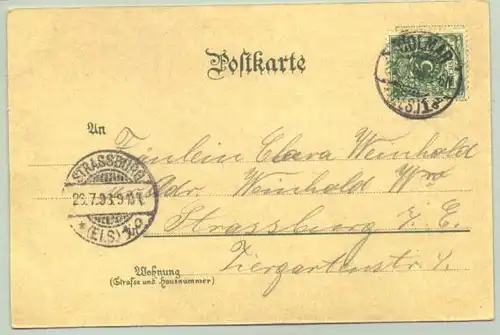 Postkarte
COLMAR
(ELS) 1 d
An
Fräulein Clara Weinhold
Adr. Weinhold Wwe
Strassburg i. E.
Tiergartenstr
STRASSBURG
(ELS)
Wohnung
(Strasse und Hausnummer)